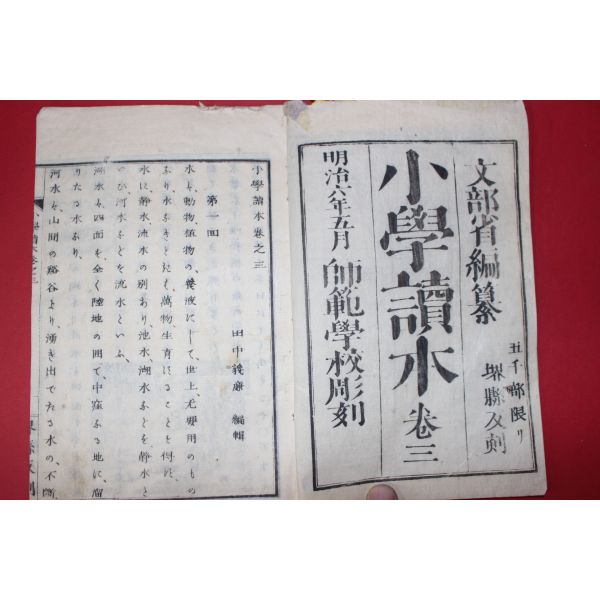 文部省編纂
五千部限リ
堺縣反刻
小學讀本 卷三
明治六年五月 師範學校彫刻
小學讀本卷之三
田中義廉 編輯
第一回
水ハ、動物植物の養液にして、世上、无要用のもの
水に、静水、流水の別あり、池水、湖水などを、静水と
のひ、河水などを、流水といふ、
湖水ハ、四面を、全く陸地の囲て、中窪なる地に、溜
りたる水なり、
河水ハ、山間の谿谷より、湧き出でたる水の、不斷、